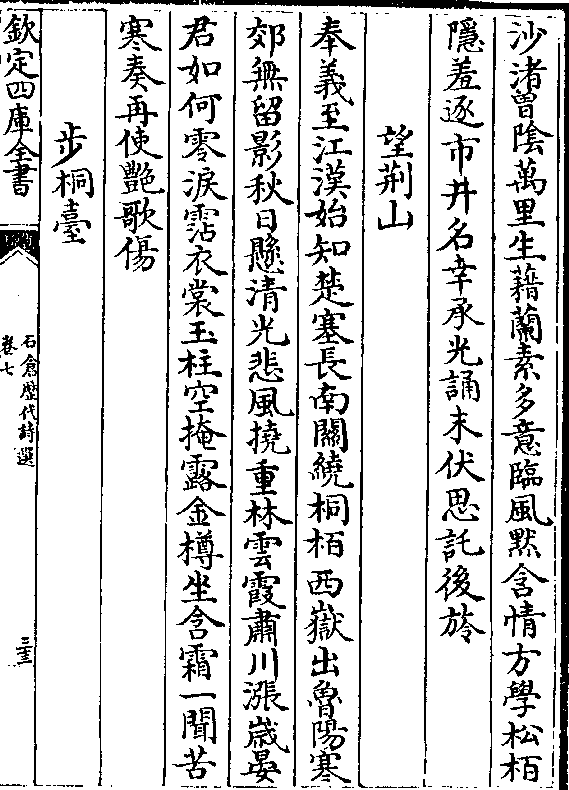 沙渚曾陰萬里生藉蘭素多意臨風黙含情方學松栢
隱羞逐市井名幸承光誦末伏思託後旍
望荆山
奉義至江漢始知楚塞長南闗繞桐栢西嶽出魯陽寒
郊無留影秋日懸清光悲風撓重林雲霞肅川漲嵗晏
君如何零淚霑衣裳玉柱空掩露金樽坐含霜一聞苦
寒奏再使艷歌傷
步桐臺
欽定四庫全書
石倉歴代詩選
卷七
三十三